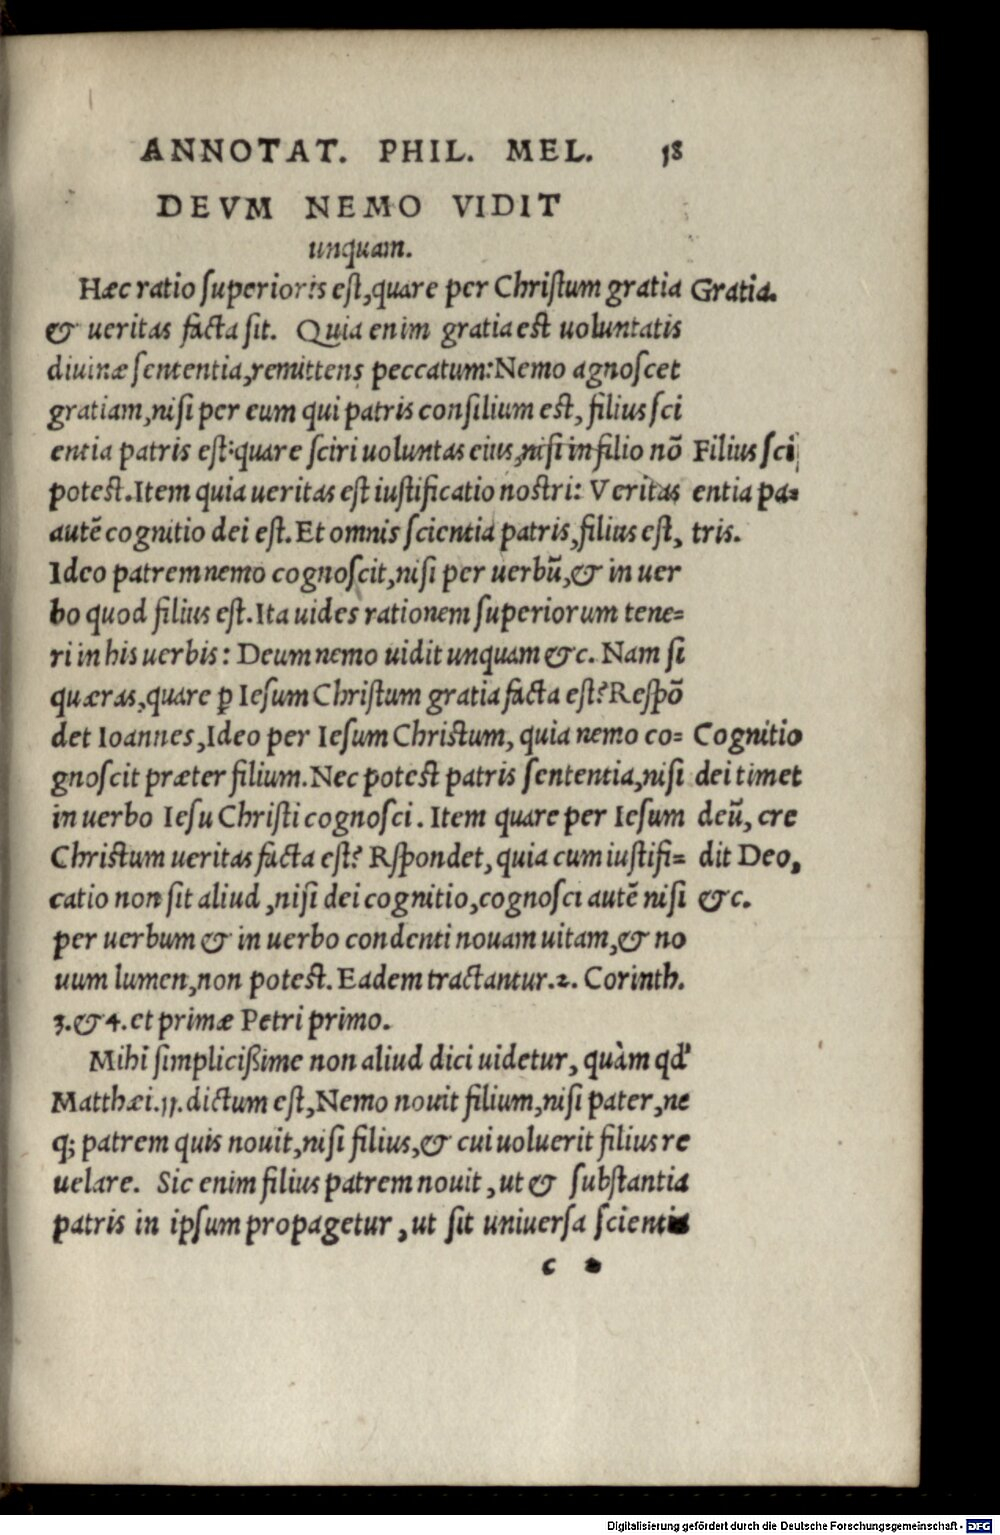 ANNOTAT. PHIL. MEL. 18
DEVM NEMO VIDIT
unquam.
Hæc ratio superioris est, quare per Christum gratia
Gratia.
& ueritas facta sit. Quia enim gratia est uoluntatis
diuinæ sententia, remittens peccatum: Nemo agnoscet
gratiam, nisi per eum qui patris consilium est, filius sci
entia patris est: quare sciri uoluntas eius, nisi in filio nõ
Filius sci
potest. Item quia ueritas est iustificatio nostri: Veritas
entia pa=
autẽ cognitio dei est. Et omnis scientia patris, filius est,
tris.
Ideo patrem nemo cognoscit, nisi per uerbũ, & in uer
bo quod filius est. Ita uides rationem superiorum tene=
ri in his uerbis: Deum nemo uidit unquam &c. Nam si
quæras, quare ꝑ Iesum Christum gratia facta est? Respõ
det Ioannes, Ideo per Iesum Christum, quia nemo co=
Cognitio
gnoscit præter filium. Nec potest patris sententia, nisi
dei timet
in uerbo Iesu Christi cognosci. Item quare per Iesum
deũ, cre
Christum ueritas facta est? Rspondet, quia cum iustifi=
dit Deo,
catio non sit aliud, nisi dei cognitio, cognosci autẽ nisi
&c.
per uerbum & in uerbo condenti nouam uitam, & no
uum lumen, non potest. Eadem tractantur. 2. Corinth.
3. & 4. et primæ Petri primo.
Mihi simplicißime non aliud dici uidetur, quàm qd'
Matthæi. 11. dictum est, Nemo nouit filium, nisi pater, ne
q; patrem quis nouit, nisi filius, & cui uoluerit filius re
uelare. Sic enim filius patrem nouit, ut & substantia
patris in ipsum propagetur, ut sit uniuersa scientia
c
Digitalisierung gefördert durch die Deutsche Forschungsgemeinschaft - DFG